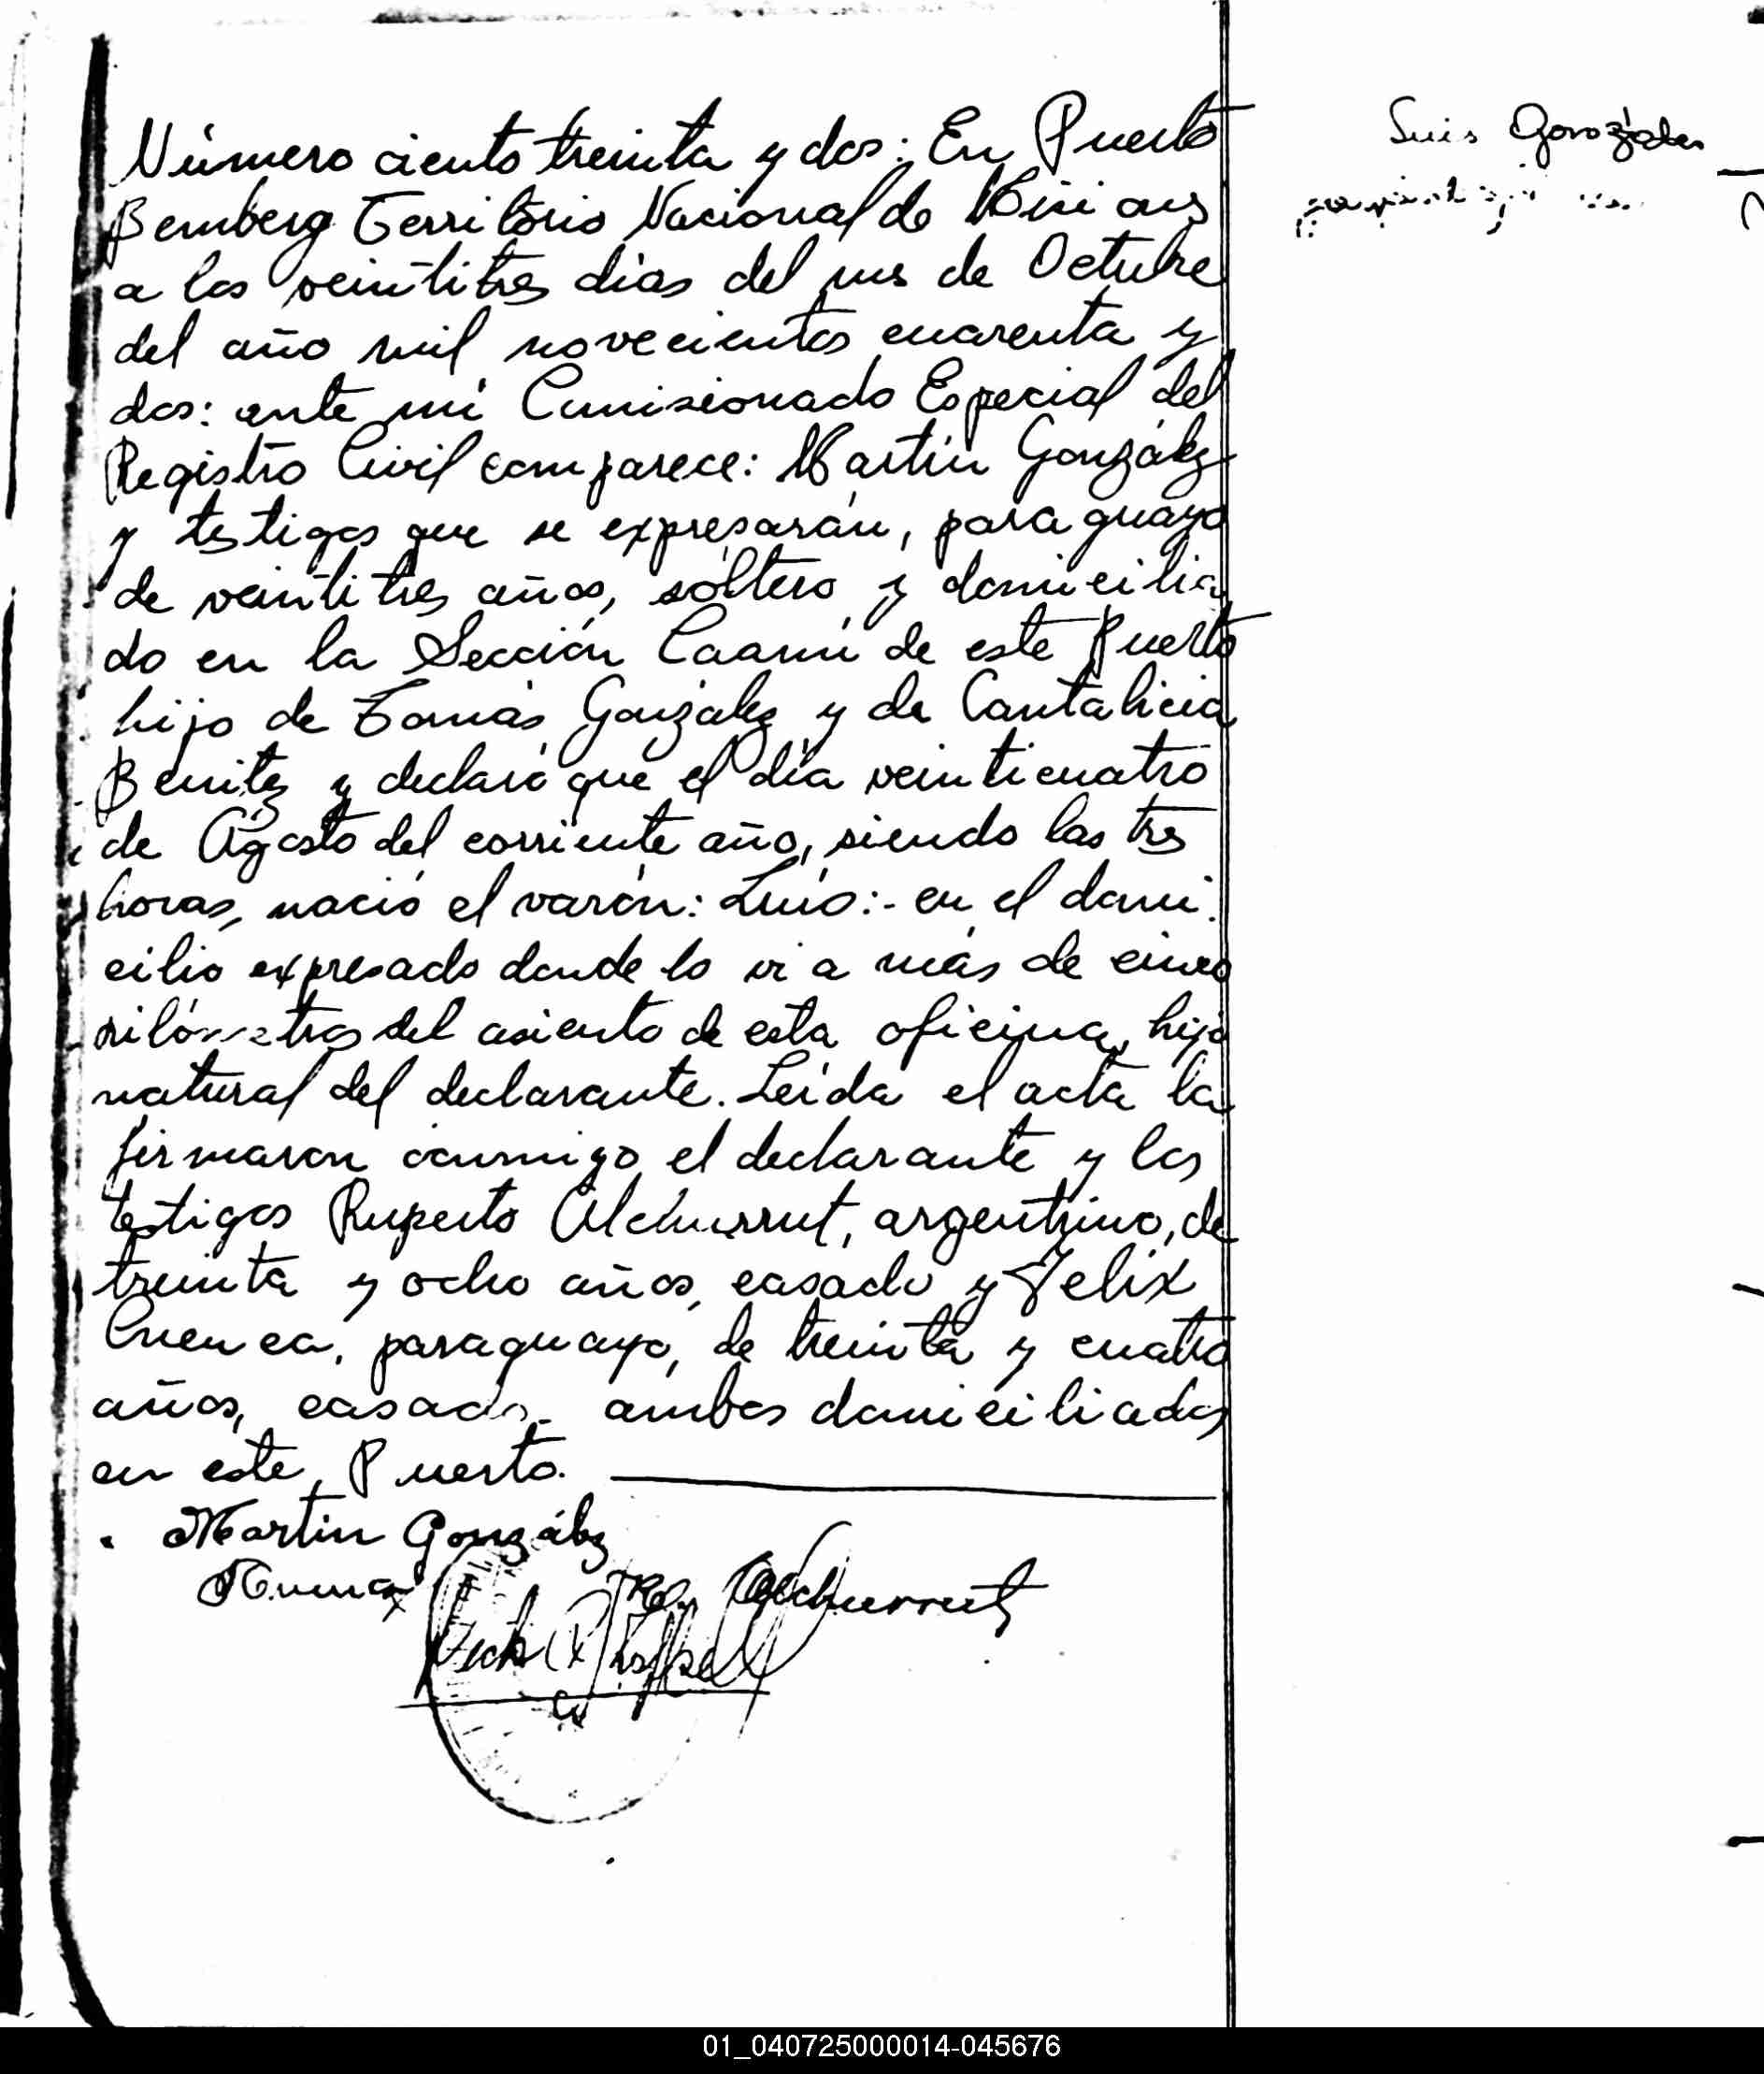 Número ciento treinta y dos: En Puerto
Bemberg Territorio Nacional de Misiones
a los veintitres dias del mes de Octubre
del año mil novecientos cuarenta y
dos: ante mi Comisionado Especial del
Registro Civil comparece: Martín González
y testigos que se expresarán, paraguayo
de veintitres años, soltero y domicilia
do en la Sección Caamí de este Puerto
hijo de Tomás González y de Cantalicia
Benitez y declaró que el día veinticuatro
de Agosto del corriente año, siendo las tres
horas, nació el varón: Luis:- en el domi
cilio expresado donde lo vi a más de cinco
kilómetros del asiento de esta oficina, hijo
natural del declarante. Leída el acta la
firmaron conmigo el declarante y los
testigos Ruperto Alchurrut, argentino, de
treinta y ocho años, casado y Felix
Cuenca, paraguayo, de treinta y cuatro
años, casado, ambos domiciliados
en este Puerto.
Martin González
Alchurrut
Luis González
01_040725000014-045676